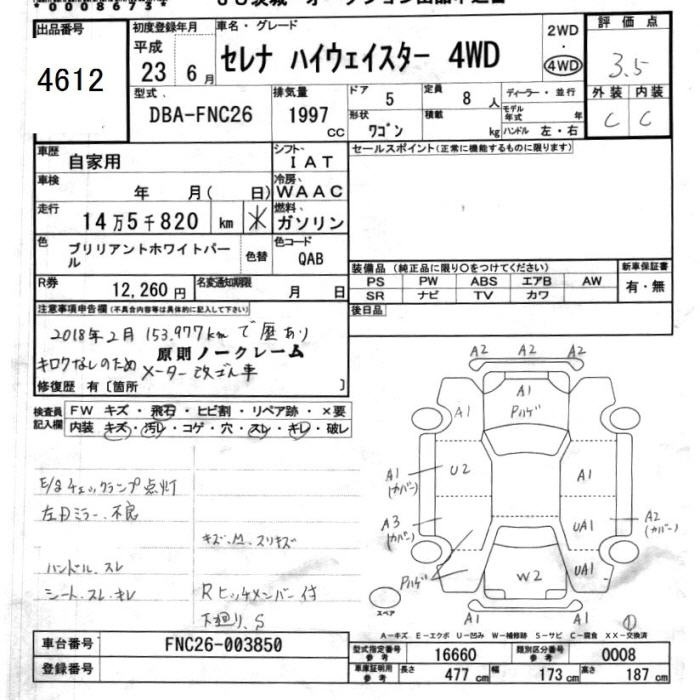 出品番号
4612
初度登録年月
平成
23 年 6 月
車名・グレード
セレナ ハイウェイスター 4WD
2WD
・
4WD
評価点
3.5
外装 内装
C C
型式
DBA-FNC26
排気量
1997 CC
ドア 5
定員 8 人
形状 ワゴン
積載 kg
ディーラー・並行
モデル年式 年
ハンドル 左・右
車歴 自家用
シフト IAT
車検 年 月( 日)
冷房 WAAC
走行 14万5千820 km
燃料 ガソリン
色 ブリリアントホワイトパール
色替
色コード QAB
R券 12,260 円
名変通知期限 月 日
セールスポイント(正常に機能するものに限ります)
装備品(純正品に限り○をつけてください)
PS PW ABS エアB AW
SR ナビ TV カワ
新車保証書
有・無
後日品
注意事項申告欄(不具合内容等は具体的に記入して下さい)
2018年2月 153,977kmで歴あり
原則ノークレーム
キロクなしのため メーター改ざん車
修復歴 有〔箇所 〕
検査員記入欄
FW キズ・飛石・ヒビ割・リペア跡・×要
内装 キズ・汚レ・コゲ・穴・スレ・キレ・破レ
E/gチェックランプ点灯
左Dミラー不良
キズ、凹、スリキズ
ハンドル、スレ
シート、スレ、キレ
Rヒッチメンバー付
下廻り、S
A2 A2 A2
A1
A1 Pハゲ
A1 (カバー)
U2
A1
A3 (カバー)
UA1
A2 (カバー)
Pハゲ
W2
UA1
スペア
A1 A1
①
A－キズ E－エクボ U－凹み W－補修跡 S－サビ C－腐食 XX－交換済
車台番号 FNC26-003850
登録番号
型式指定番号 参考 16660
類別区分番号 参考 0008
車庫証明用 参考
長さ 477 cm
幅 173 cm
高さ 187 cm